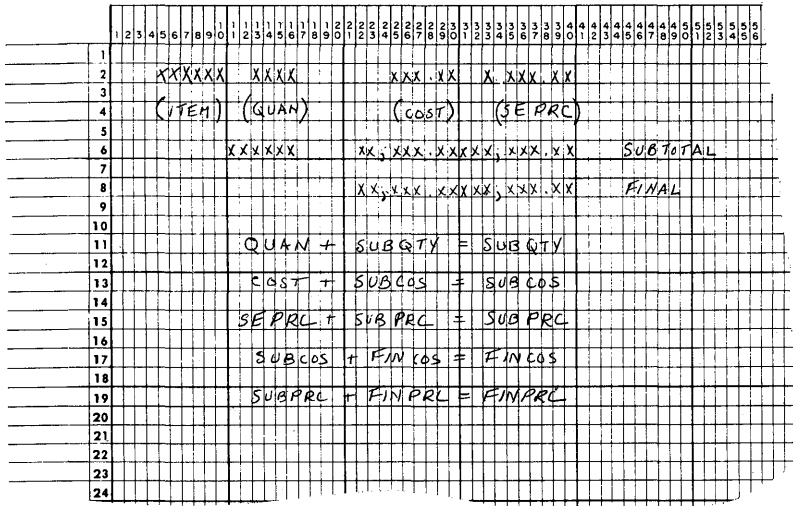 1 2 3 4 5 6 7 8 9 10 11 12 13 14 15 16 17 18 19 20 21 22 23 24 25 26 27 28 29 30 31 32 33 34 35 36 37 38 39 40 41 42 43 44 45 46 47 48 49 50 51 52 53 54 55 56
1
2 XXXXXX XXXX XXX.XX X.XXX.XX
3
4 (ITEM) (QUAN) (COST) (SEPRC)
5
6 XXXXXX XX,XXX.XXXXX,XXX.XX SUBTOTAL
7
8 XX,XXX.XXXXX,XXX.XX FINAL
9
10
11 QUAN + SUBQTY = SUBQTY
12
13 COST + SUBCOS = SUBCOS
14
15 SEPRC + SUBPRC = SUBPRC
16
17 SUBCOS + FINCOS = FINCOS
18
19 SUBPRC + FINPRC = FINPRC
20
21
22
23
24